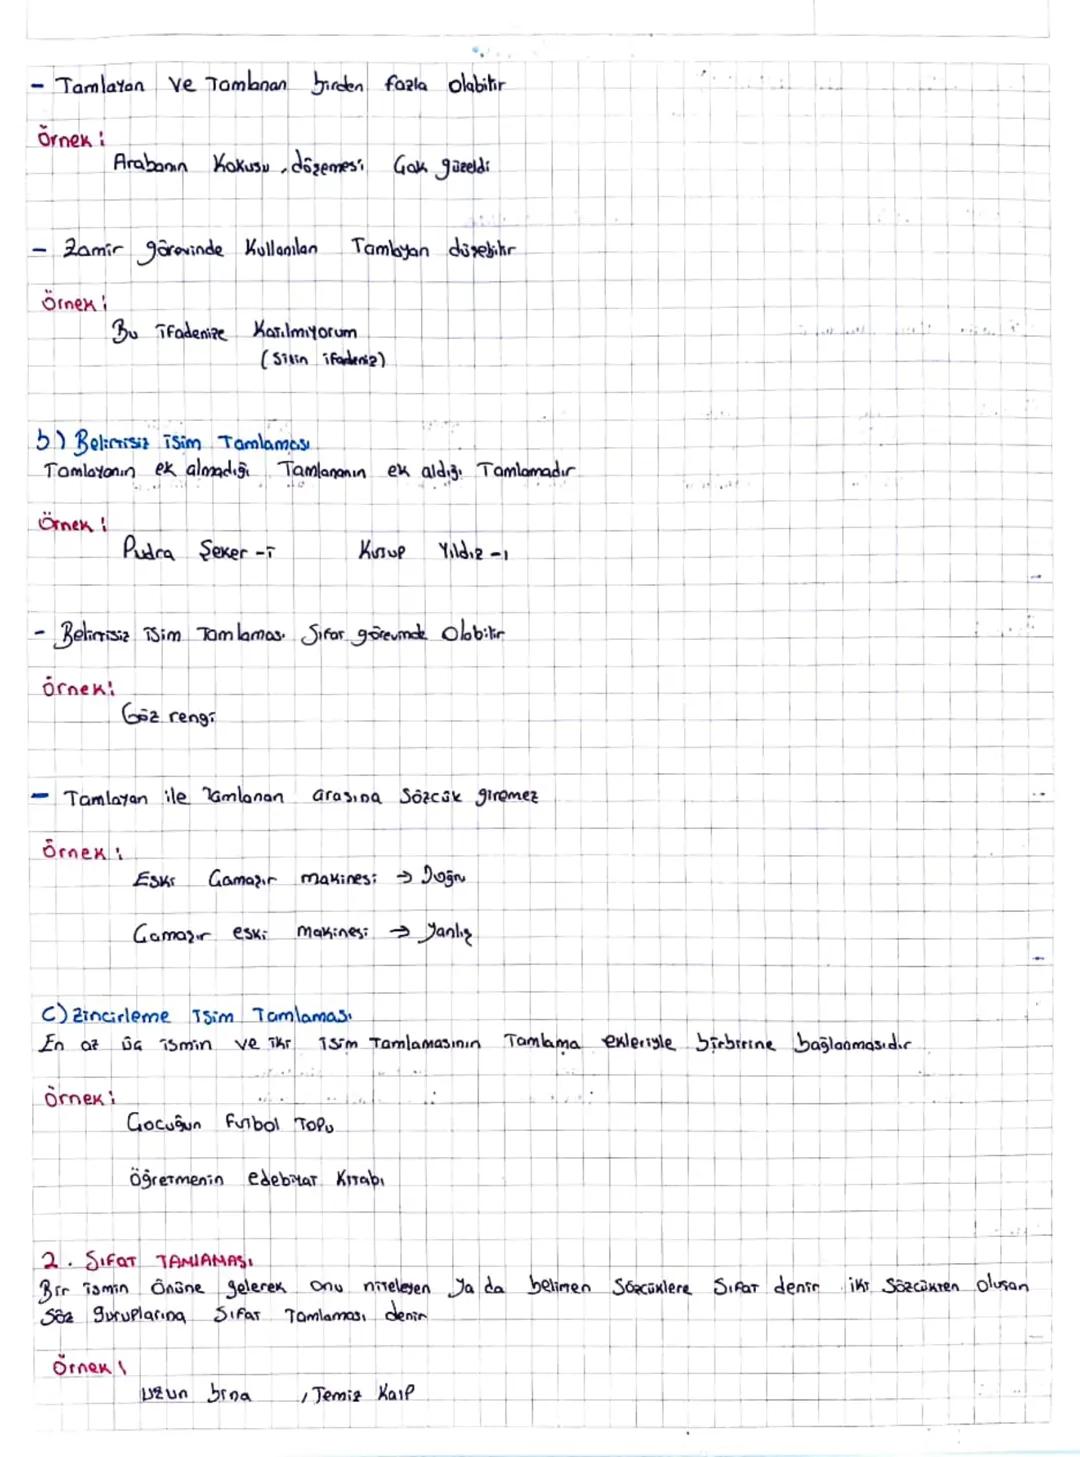 - Tamlayan ve Tamlanan birden fazla olabilir
Örnek:
Arabanın Kokusu, döşemesi Çok güzeldi
- Zamir görevinde Kullanılan Tamlayan düşebilir
Örnek:
Bu ifadenize Katılmıyorum
(Sizin ifadeniz)
b) Belirtisiz isim Tamlaması
Tamlayanın ek almadığı Tamlananın ek aldığı Tamlamadır
Örnek:
Pudra Şeker -i Kutup Yıldız -ı
- Belirtisiz isim Tamlaması Sıfat görevinde Olabilir
Örnek:
Göz rengi
- Tamlayan ile Tamlanan arasına Sözcük giremez
Örnek:
Eski Çamaşır makinesi → Doğru
Çamaşır eski makinesi → Yanlış
C) Zincirleme İsim Tamlaması
En az üç ismin ve iki isim Tamlamasının Tamlama ekleriyle birbirine bağlanmasıdır
Örnek:
Çocuğun Futbol Topu
Öğretmenin edebiyat Kitabı
2. SIFAT TAMLAMASI
Bir ismin Önüne gelerek onu niteleyen Ya da belirten Sözcüklere Sıfat denir. iki Sözcükten Oluşan
Söz guruplarına Sıfat Tamlaması denir
Örnek:
Uzun bina , Temiz Kalp